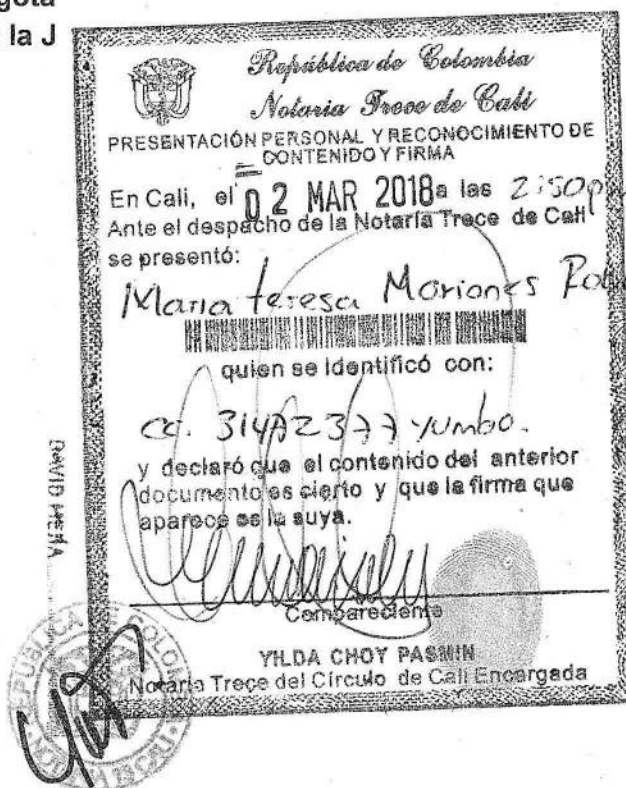 la J
República de Colombia
Notaria Trece de Cali
PRESENTACIÓN PERSONAL Y RECONOCIMIENTO DE
CONTENIDO Y FIRMA
En Cali, el 02 MAR 2018 a las 2:50p
Ante el despacho de la Notaría Trece de Cali
se presentó:
Maria teresa Moriones
quien se identificó con:
cc. yumbo.
y declaró que el contenido del anterior
documento es cierto y que la firma que
aparece es la suya.
Compareciente
YILDA CHOY PASMIN
Notaria Trece del Círculo de Cali Encargada
DAVID MENA